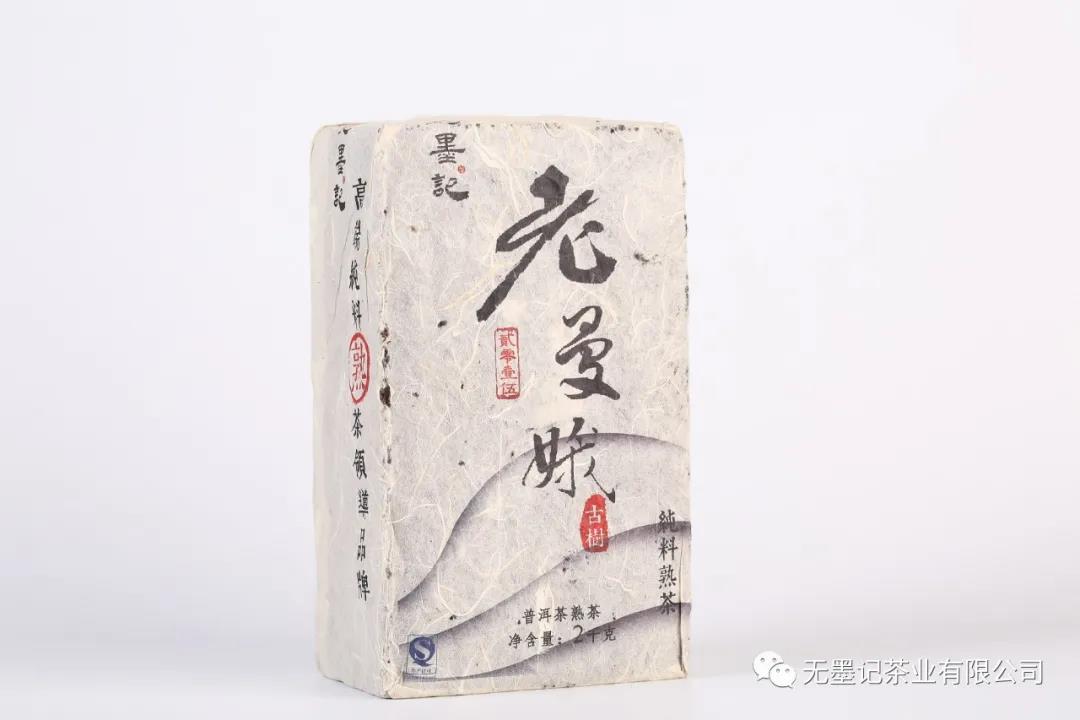 墨記
高端純料熟茶領導品牌
墨記
老曼娥
貳零壹伍
古樹
純料熟茶
普洱茶熟茶
净含量：2千克
无墨记茶业有限公司